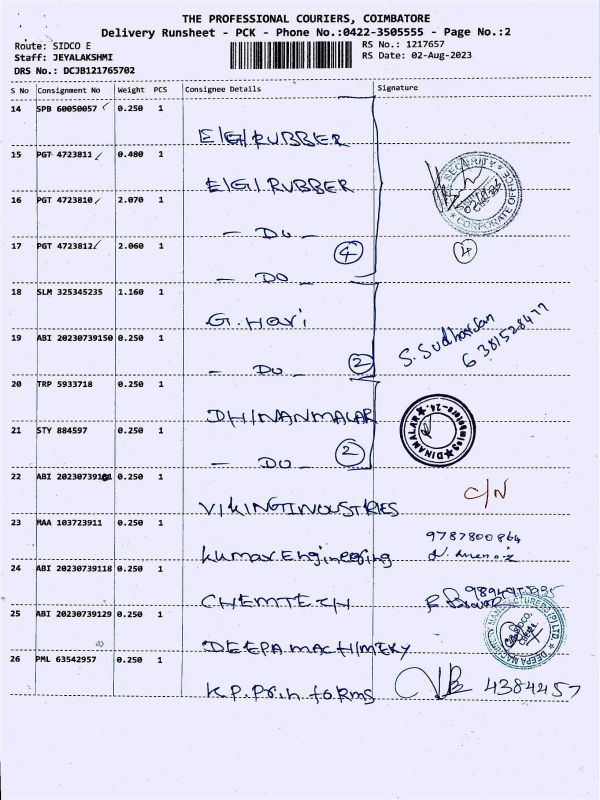 THE PROFESSIONAL COURIERS, COIMBATORE
Delivery Runsheet - PCK - Phone No.:0422-3505555 - Page No.:2
Route: SIDCO E
RS No.: 1217657
Staff: JEYALAKSHMI
RS Date: 02-Aug-2023
DRS No.: DCJB121765702
S No Consignment No Weight PCS Consignee Details Signature
14 SPB 60050057 0.250 1
E/G/RUBBER
15 PGT 4723811 0.480 1
E/G/.RUBBER
SECURITY
CORPORATE OFFICE
16 PGT 4723810 2.070 1
— DO —
4
4
17 PGT 4723812 2.060 1
— DO —
18 SLM 325345235 1.160 1
G. Hari
S. Sudharsan
6381528477
19 ABI 20230739150 0.250 1
— DO —
2
20 TRP 5933718 0.250 1
DHINANMALAR
DINAMALAR
Coimbatore-24.
21 STY 884597 0.250 1
— DO —
2
22 ABI 20230739101 0.250 1
C/N
VIKINGINDUSTRIES
23 MAA 103723911 0.250 1
9787800864
Kumar.Engineering
24 ABI 20230739118 0.250 1
CHEMTECH
25 ABI 20230739129 0.250 1
DEEPA MACHINERY
DEEPA MACHINERY MANUFACTURERS (P) LTD.
26 PML 63542957 0.250 1
K.P.Prin forms
4384457